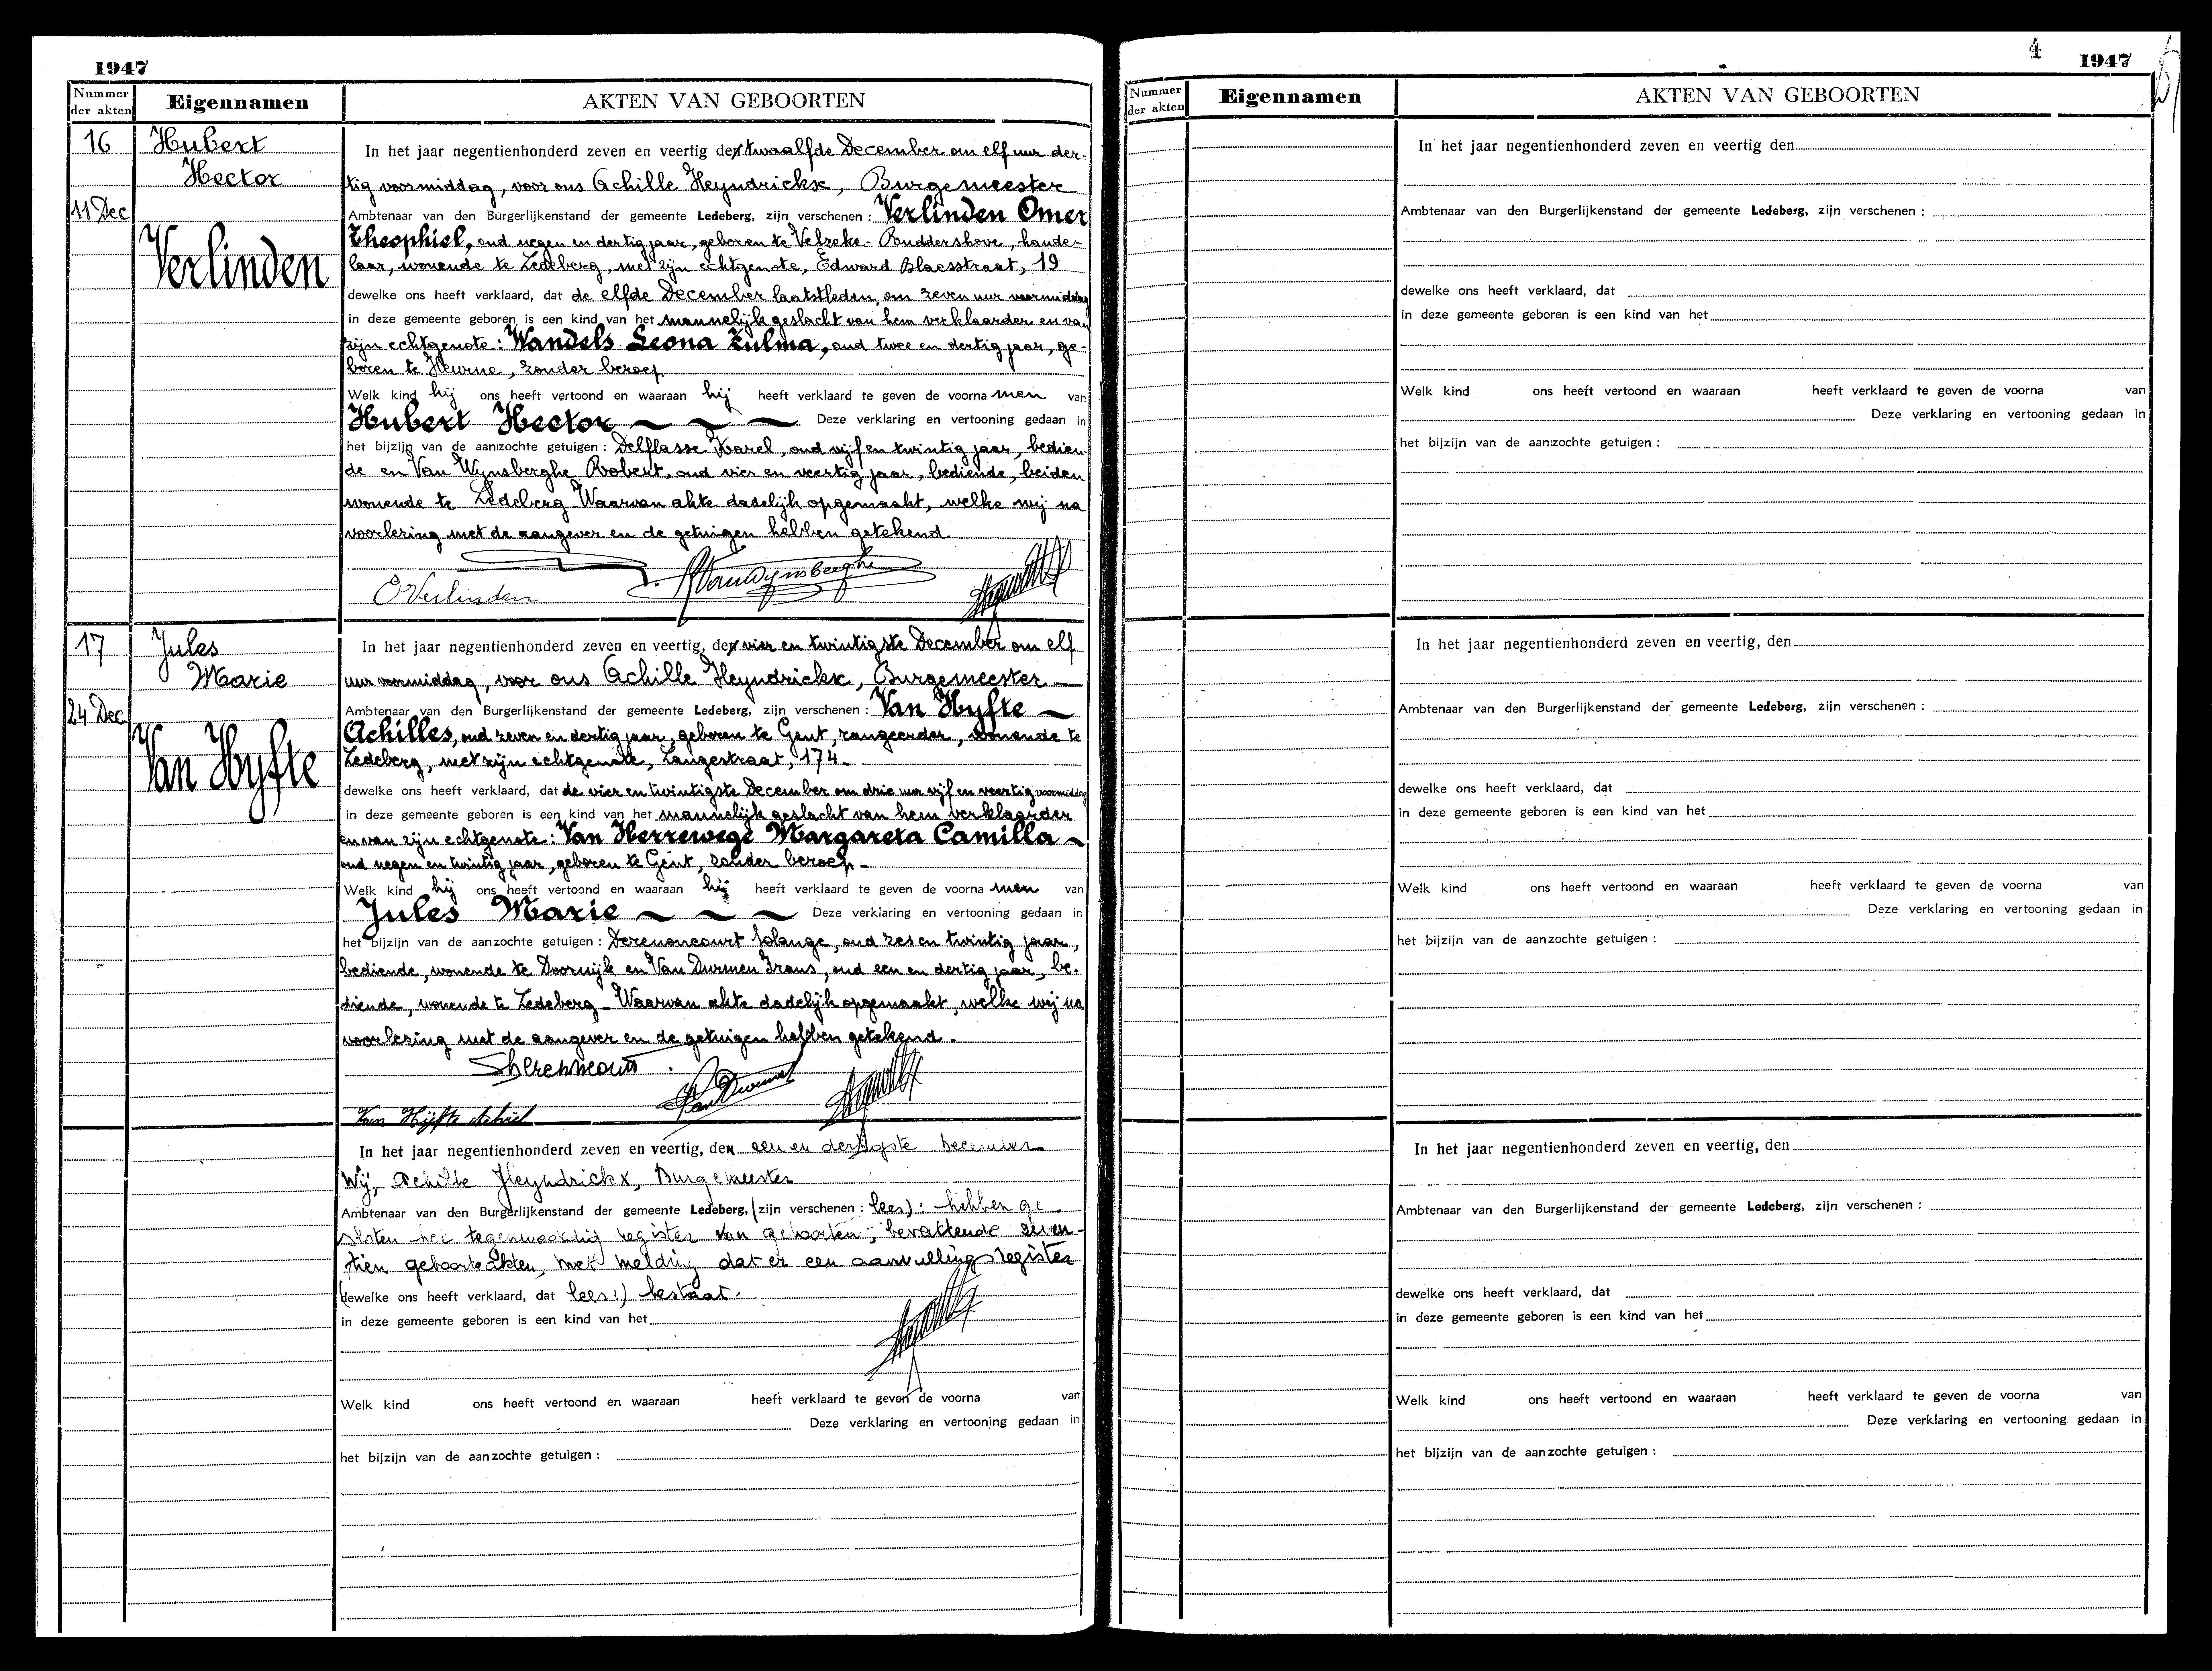 1947
Nummer der akten
Eigennamen
AKTEN VAN GEBOORTEN
16
Hubert
Hector
11 Dec
Verlinden
In het jaar negentienhonderd zeven en veertig den twaalfde December om elf uur der-
tig voormiddag, voor ons Achille Heyndrickx, Burgemeester
Ambtenaar van den Burgerlijkenstand der gemeente Ledeberg, zijn verschenen : Verlinden Omer
Theophiel, oud negen en dertig jaar, geboren te Velzeke-Ruddershove, hande-
laar, wonende te Ledeberg, met zijn echtgenote, Edward Blaesstraat, 19
dewelke ons heeft verklaard, dat de elfde December laatstleden, om zeven uur voormiddag
in deze gemeente geboren is een kind van het mannelijk geslacht van hem verklaarder en van
zijn echtgenote: Wandels Leona Zulma, oud twee en dertig jaar, ge-
boren te Heurne, zonder beroep
Welk kind hij ons heeft vertoond en waaraan hij heeft verklaard te geven de voorna men van
Hubert Hector ~ ~ ~ Deze verklaring en vertooning gedaan in
het bijzijn van de aanzochte getuigen : Delflasse Karel, oud vijf en twintig jaar, bedien-
de en Van Wynsberghe Robert, oud vier en veertig jaar, bediende, beiden
wonende te Ledeberg Waarvan akte dadelijk opgemaakt, welke wij na
voorlezing met de aangever en de getuigen hebben getekend
O Verlinden
R Van Wynsberghe
17
Jules
Marie
24 Dec
Van Hyfte
In het jaar negentienhonderd zeven en veertig, den vier en twintigste December om elf
uur voormiddag, voor ons Achille Heyndrickx, Burgemeester —
Ambtenaar van den Burgerlijkenstand der gemeente Ledeberg, zijn verschenen : Van Hyfte ~
Achilles, oud zeven en dertig jaar, geboren te Gent, rangeerder, wonende te
Ledeberg, met zijn echtgenote, Langestraat, 174 -
dewelke ons heeft verklaard, dat de vier en twintigste December om drie uur vijf en veertig voormiddag
in deze gemeente geboren is een kind van het mannelijk geslacht van hem verklaarder
en van zijn echtgenote: Van Herrewege Margareta Camilla ~
oud negen en twintig jaar, geboren te Gent, zonder beroep -
Welk kind hij ons heeft vertoond en waaraan hij heeft verklaard te geven de voorna men van
Jules Marie ~ ~ ~ Deze verklaring en vertooning gedaan in
het bijzijn van de aanzochte getuigen : Derenoncourt Solange, oud zes en twintig jaar,
bediende, wonende te Doornijk en Van Durmen Frans, oud een en dertig jaar, be-
diende, wonende te Ledeberg - Waarvan akte dadelijk opgemaakt, welke wij na
voorlezing met de aangever en de getuigen hebben getekend -
Van Hijfte Achiel
In het jaar negentienhonderd zeven en veertig, den een en dertigste December
Wij, Achille Heyndrickx, Burgemeester
Ambtenaar van den Burgerlijkenstand der gemeente Ledeberg, (zijn verschenen : lees) : hebben ge-
sloten het tegenwoordig register van geboorten, bevattende zeven-
tien geboorteakten, met melding dat er een aanvullingsregister
(dewelke ons heeft verklaard, dat lees:) bestaat.
in deze gemeente geboren is een kind van het
Welk kind ons heeft vertoond en waaraan heeft verklaard te geven de voorna van
Deze verklaring en vertooning gedaan in
het bijzijn van de aanzochte getuigen :
4 1947
Nummer der akten
Eigennamen
AKTEN VAN GEBOORTEN
In het jaar negentienhonderd zeven en veertig den
Ambtenaar van den Burgerlijkenstand der gemeente Ledeberg, zijn verschenen :
dewelke ons heeft verklaard, dat
in deze gemeente geboren is een kind van het
Welk kind ons heeft vertoond en waaraan heeft verklaard te geven de voorna van
Deze verklaring en vertooning gedaan in
het bijzijn van de aanzochte getuigen :
In het jaar negentienhonderd zeven en veertig, den
Ambtenaar van den Burgerlijkenstand der gemeente Ledeberg, zijn verschenen :
dewelke ons heeft verklaard, dat
in deze gemeente geboren is een kind van het
Welk kind ons heeft vertoond en waaraan heeft verklaard te geven de voorna van
Deze verklaring en vertooning gedaan in
het bijzijn van de aanzochte getuigen :
In het jaar negentienhonderd zeven en veertig, den
Ambtenaar van den Burgerlijkenstand der gemeente Ledeberg, zijn verschenen :
dewelke ons heeft verklaard, dat
in deze gemeente geboren is een kind van het
Welk kind ons heeft vertoond en waaraan heeft verklaard te geven de voorna van
Deze verklaring en vertooning gedaan in
het bijzijn van de aanzochte getuigen :